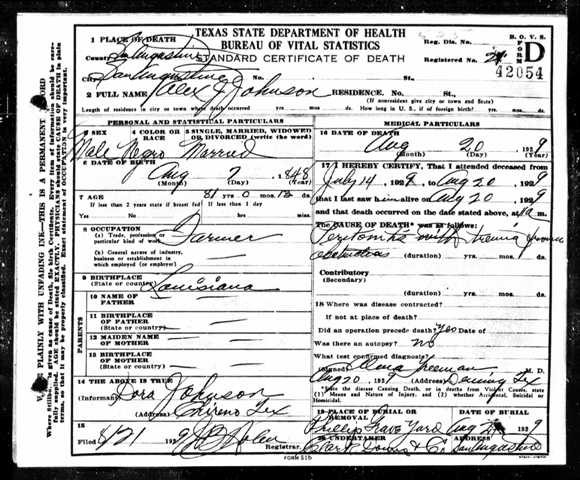 TEXAS STATE DEPARTMENT OF HEALTH
BUREAU OF VITAL STATISTICS
STANDARD CERTIFICATE OF DEATH
B. O. V. S.
FORM
D
Reg. Dis. No.
Registered No.
42054
1 PLACE OF DEATH
County San Augustine
City San Augustine No. St.
2 FULL NAME Alex J Johnson RESIDENCE. No. St.
(If nonresident give city or town and State)
Length of residence in city or town where death occurred yrs. mos. ds. How long in U. S., if of foreign birth? yrs. mos. ds.
PERSONAL AND STATISTICAL PARTICULARS
3 SEX
4 COLOR OR RACE
5 SINGLE, MARRIED, WIDOWED OR DIVORCED (write the word)
Male Negro Married
6 DATE OF BIRTH
Aug 7 1848
(Month) (Day) (Year)
7 AGE 81 0 13 ds.
If less than 2 years state if breast fed If less than 1 day
Yes No hrs. min.
8 OCCUPATION
(a) Trade, profession, or particular kind of work
Farmer
(b) General nature of industry, business or establishment in which employed (or employer)
9 BIRTHPLACE
(State or country)
Louisiana
PARENTS
10 NAME OF FATHER
11 BIRTHPLACE OF FATHER
(State or country)
12 MAIDEN NAME OF MOTHER
13 BIRTHPLACE OF MOTHER
(State or country)
14 THE ABOVE IS TRUE
(Informant) Dora Johnson
(Address) Tex
15
Filed 8/21 1929
Registrar.
MEDICAL PARTICULARS
16 DATE OF DEATH
Aug 20 1929
(Month) (Day) (Year)
17 I HEREBY CERTIFY, That I attended deceased
from July 14, 1929, to Aug 20 1929
that I last saw him alive on Aug 20 1929
and that death occurred on the date stated above, at m.
The CAUSE OF DEATH* was as follows:
Peritonitis with
(duration) yrs. mos. ds.
Contributory
(Secondary)
(duration) yrs. mos. ds.
18 Where was disease contracted?
If not at place of death?
Did an operation precede death? Yes Date of
Was there an autopsy? No
What test confirmed diagnosis?
(Signed) Freeman M. D.
Aug 20, 1929 (Address) Tex
*State the disease Causing Death, or in deaths from Violent Causes, state (1) Means and Nature of Injury, and (2) whether Accidental, Suicidal or Homicidal.
19 PLACE OF BURIAL OR REMOVAL
DATE OF BURIAL
Phillip Grave Yard Aug 1929
20 UNDERTAKER
ADDRESS
& Co San Augustine
FORM 515